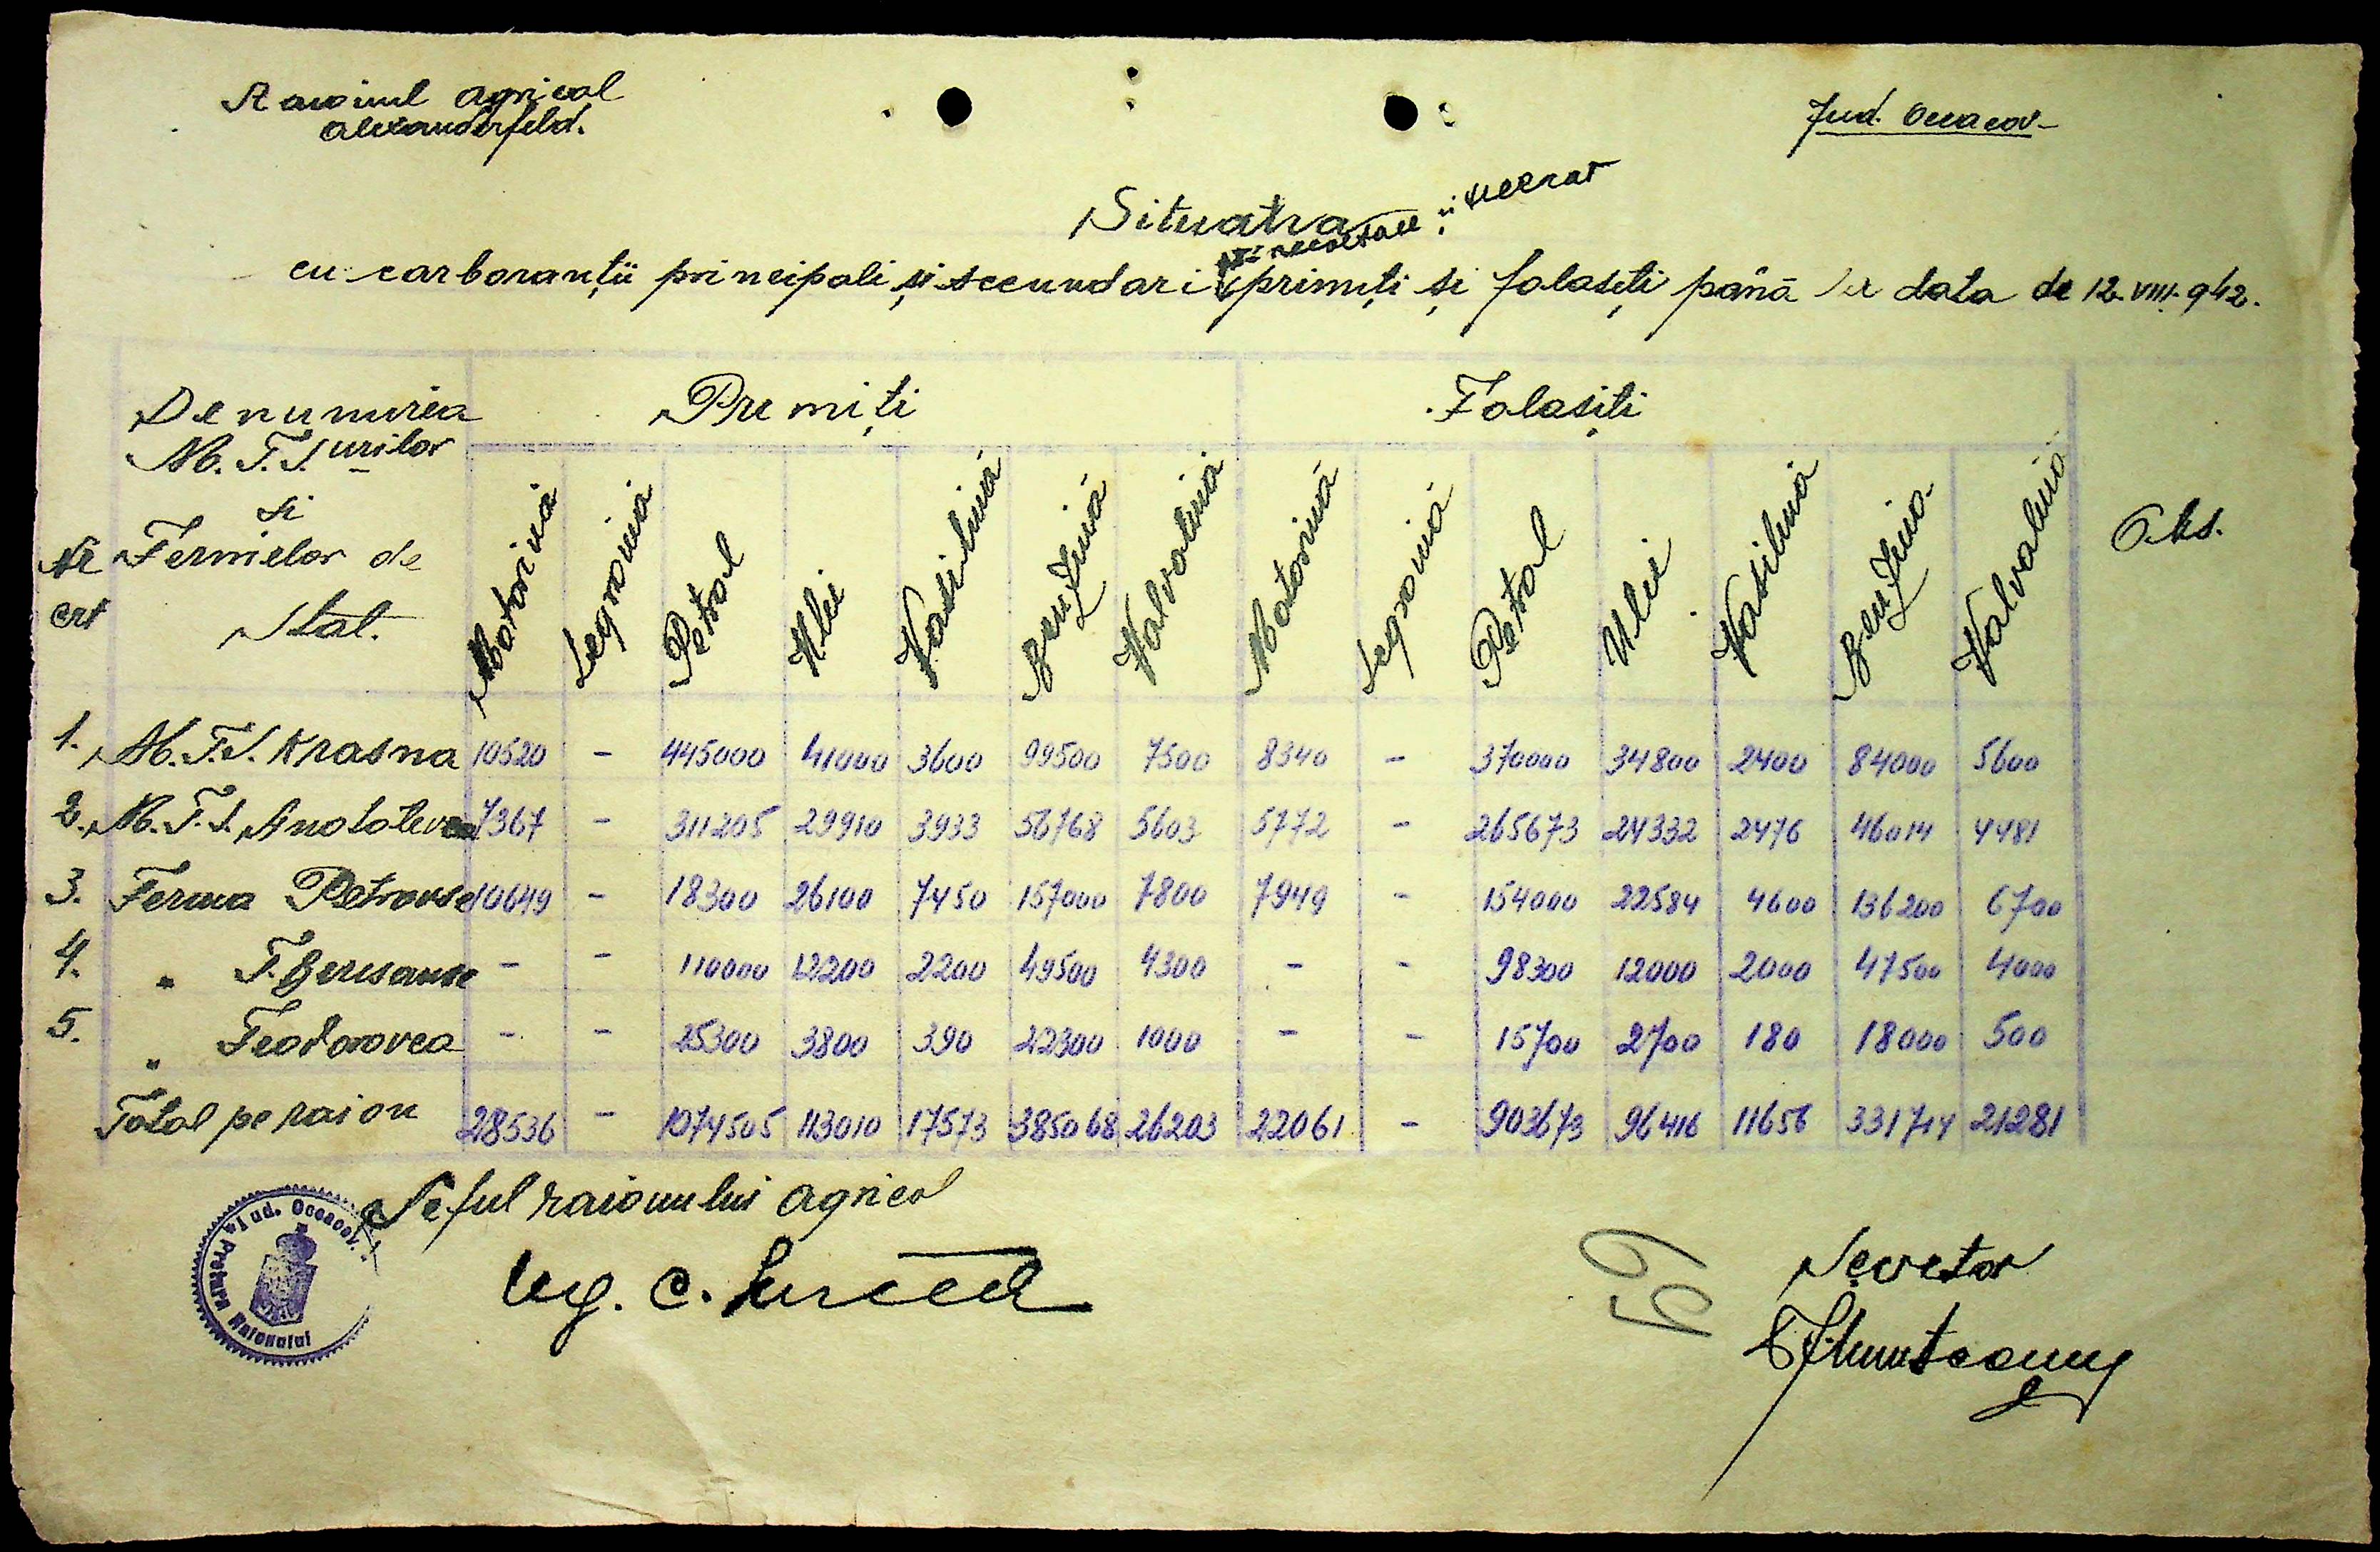 Raionul agricol
Alexanderfeld.
Jud. Oceacov
Situatia
pt. recoltare și treerat
cu carboranții principali și secundari primiți și folasiți până la data de 12.VIII.942.
Nr crt | Denumirea M.T.S. urilor si Fermelor de Stat. | Primiți | Folasiți | Obs.
Motorină | Legroină | Petrol | Ulei | Vasilină | Benzină | Valvolină | Motorină | Legroină | Petrol | Ulei | Vasilină | Benzină | Valvolină
1. M.T.S. Krasna 10520 - 445000 41000 3600 99500 7500 8340 - 370000 34800 2400 84000 5600
2. M.T.S. 7367 - 311205 29910 3933 56768 5603 5772 - 265673 24332 2476 46014 4481
3. Ferma Petrovsc 10649 - 18300 26100 7450 157000 7800 7949 - 154000 22584 4600 136200 6700
4. " - - 110000 12200 2200 49500 4300 - - 98300 12000 2000 47500 4000
5. " Feodorovca - - 25300 3800 390 22300 1000 - - 15700 2700 180 18000 500
Total pe raion 28536 - 1074505 113010 17573 385068 26203 22061 - 903673 96416 11656 331714 21281
Șeful raionului agricol
Ing. C.
Jud. Oceacov
Pretura Raionului
59
Secretar
Munteanu